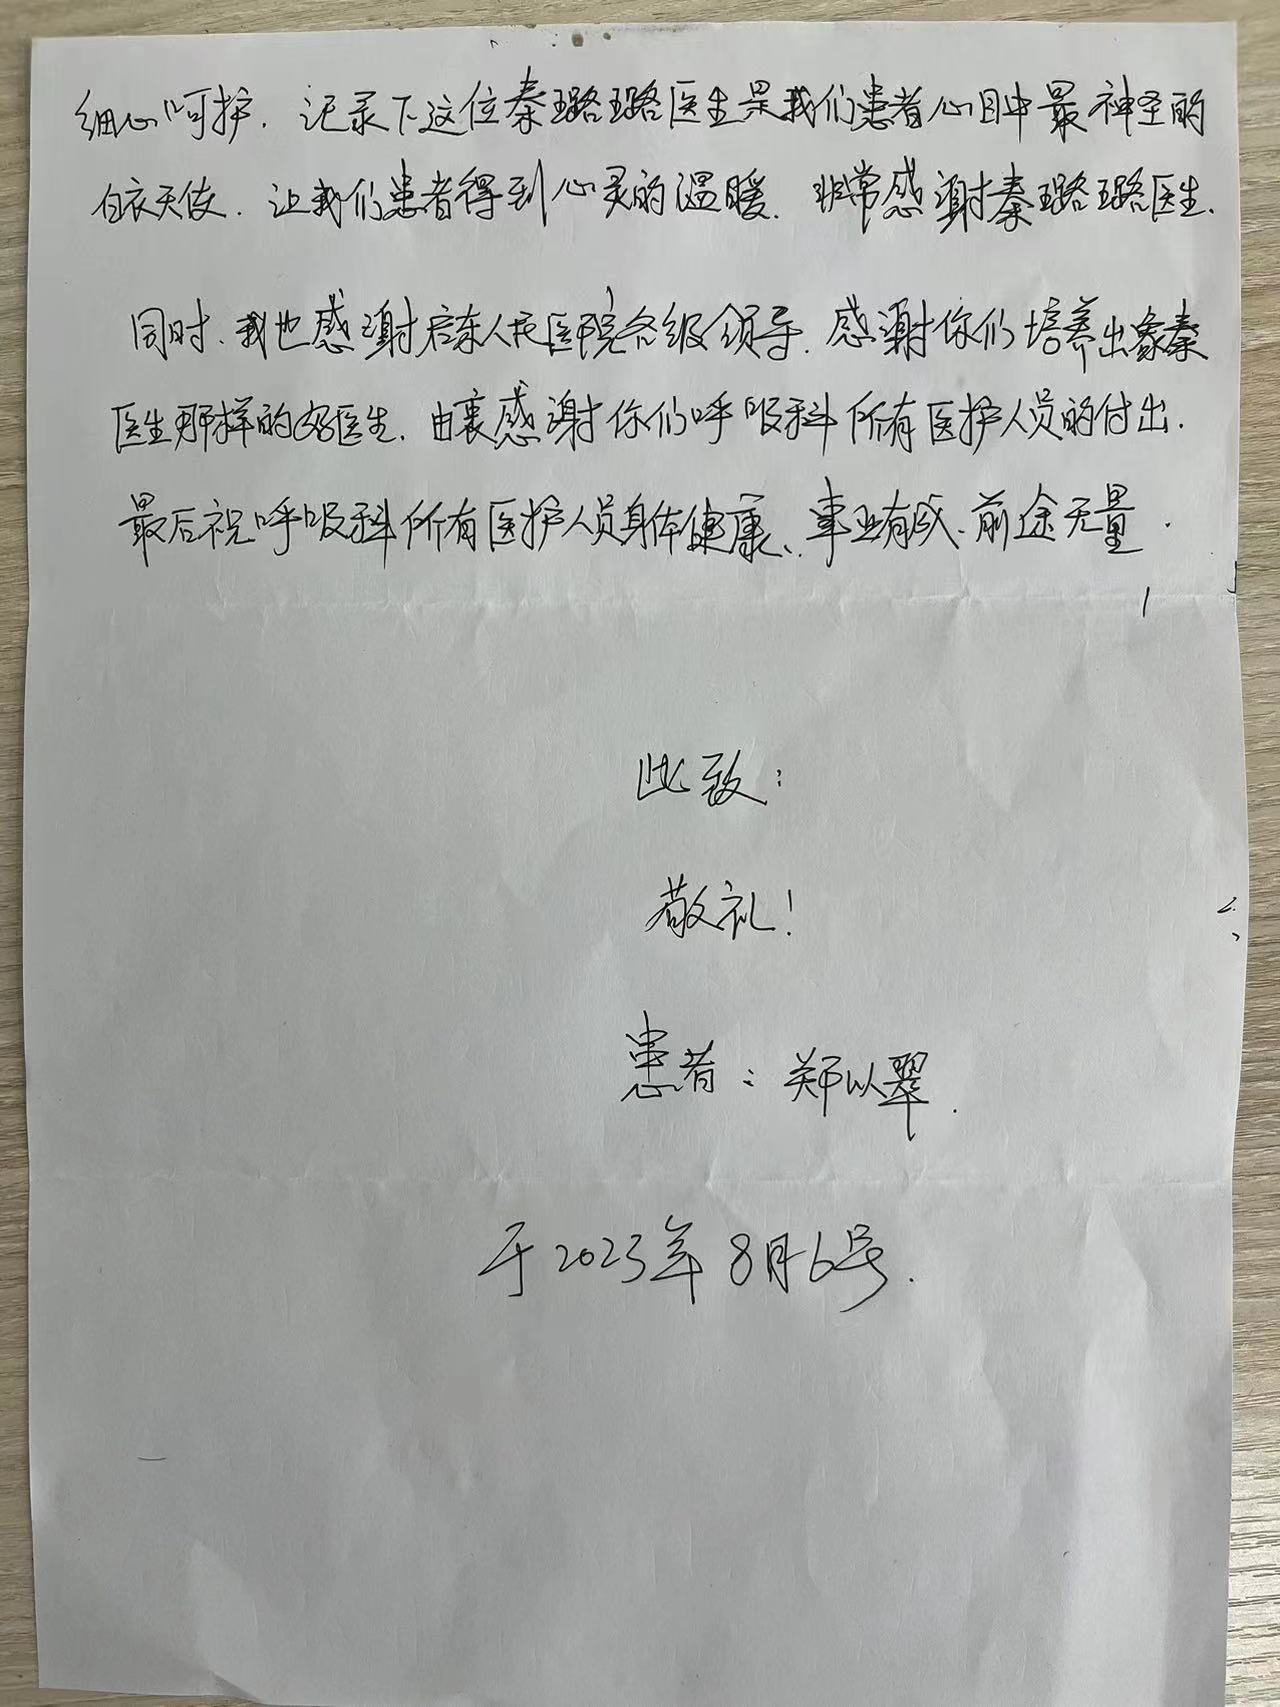 细心呵护. 记录下这位秦璐璐医生是我们患者心目中最神圣的
白衣天使. 让我们患者得到心灵的温暖. 非常感谢秦璐璐医生.
同时、我也感谢启东人民医院各级领导. 感谢你们培养出象秦
医生那样的好医生. 由衷感谢你们呼吸科所有医护人员的付出.
最后祝呼吸科所有医护人员身体健康、事业有成、前途无量.
此致:
敬礼!
患者: 郑以翠.
于2023年8月6号.